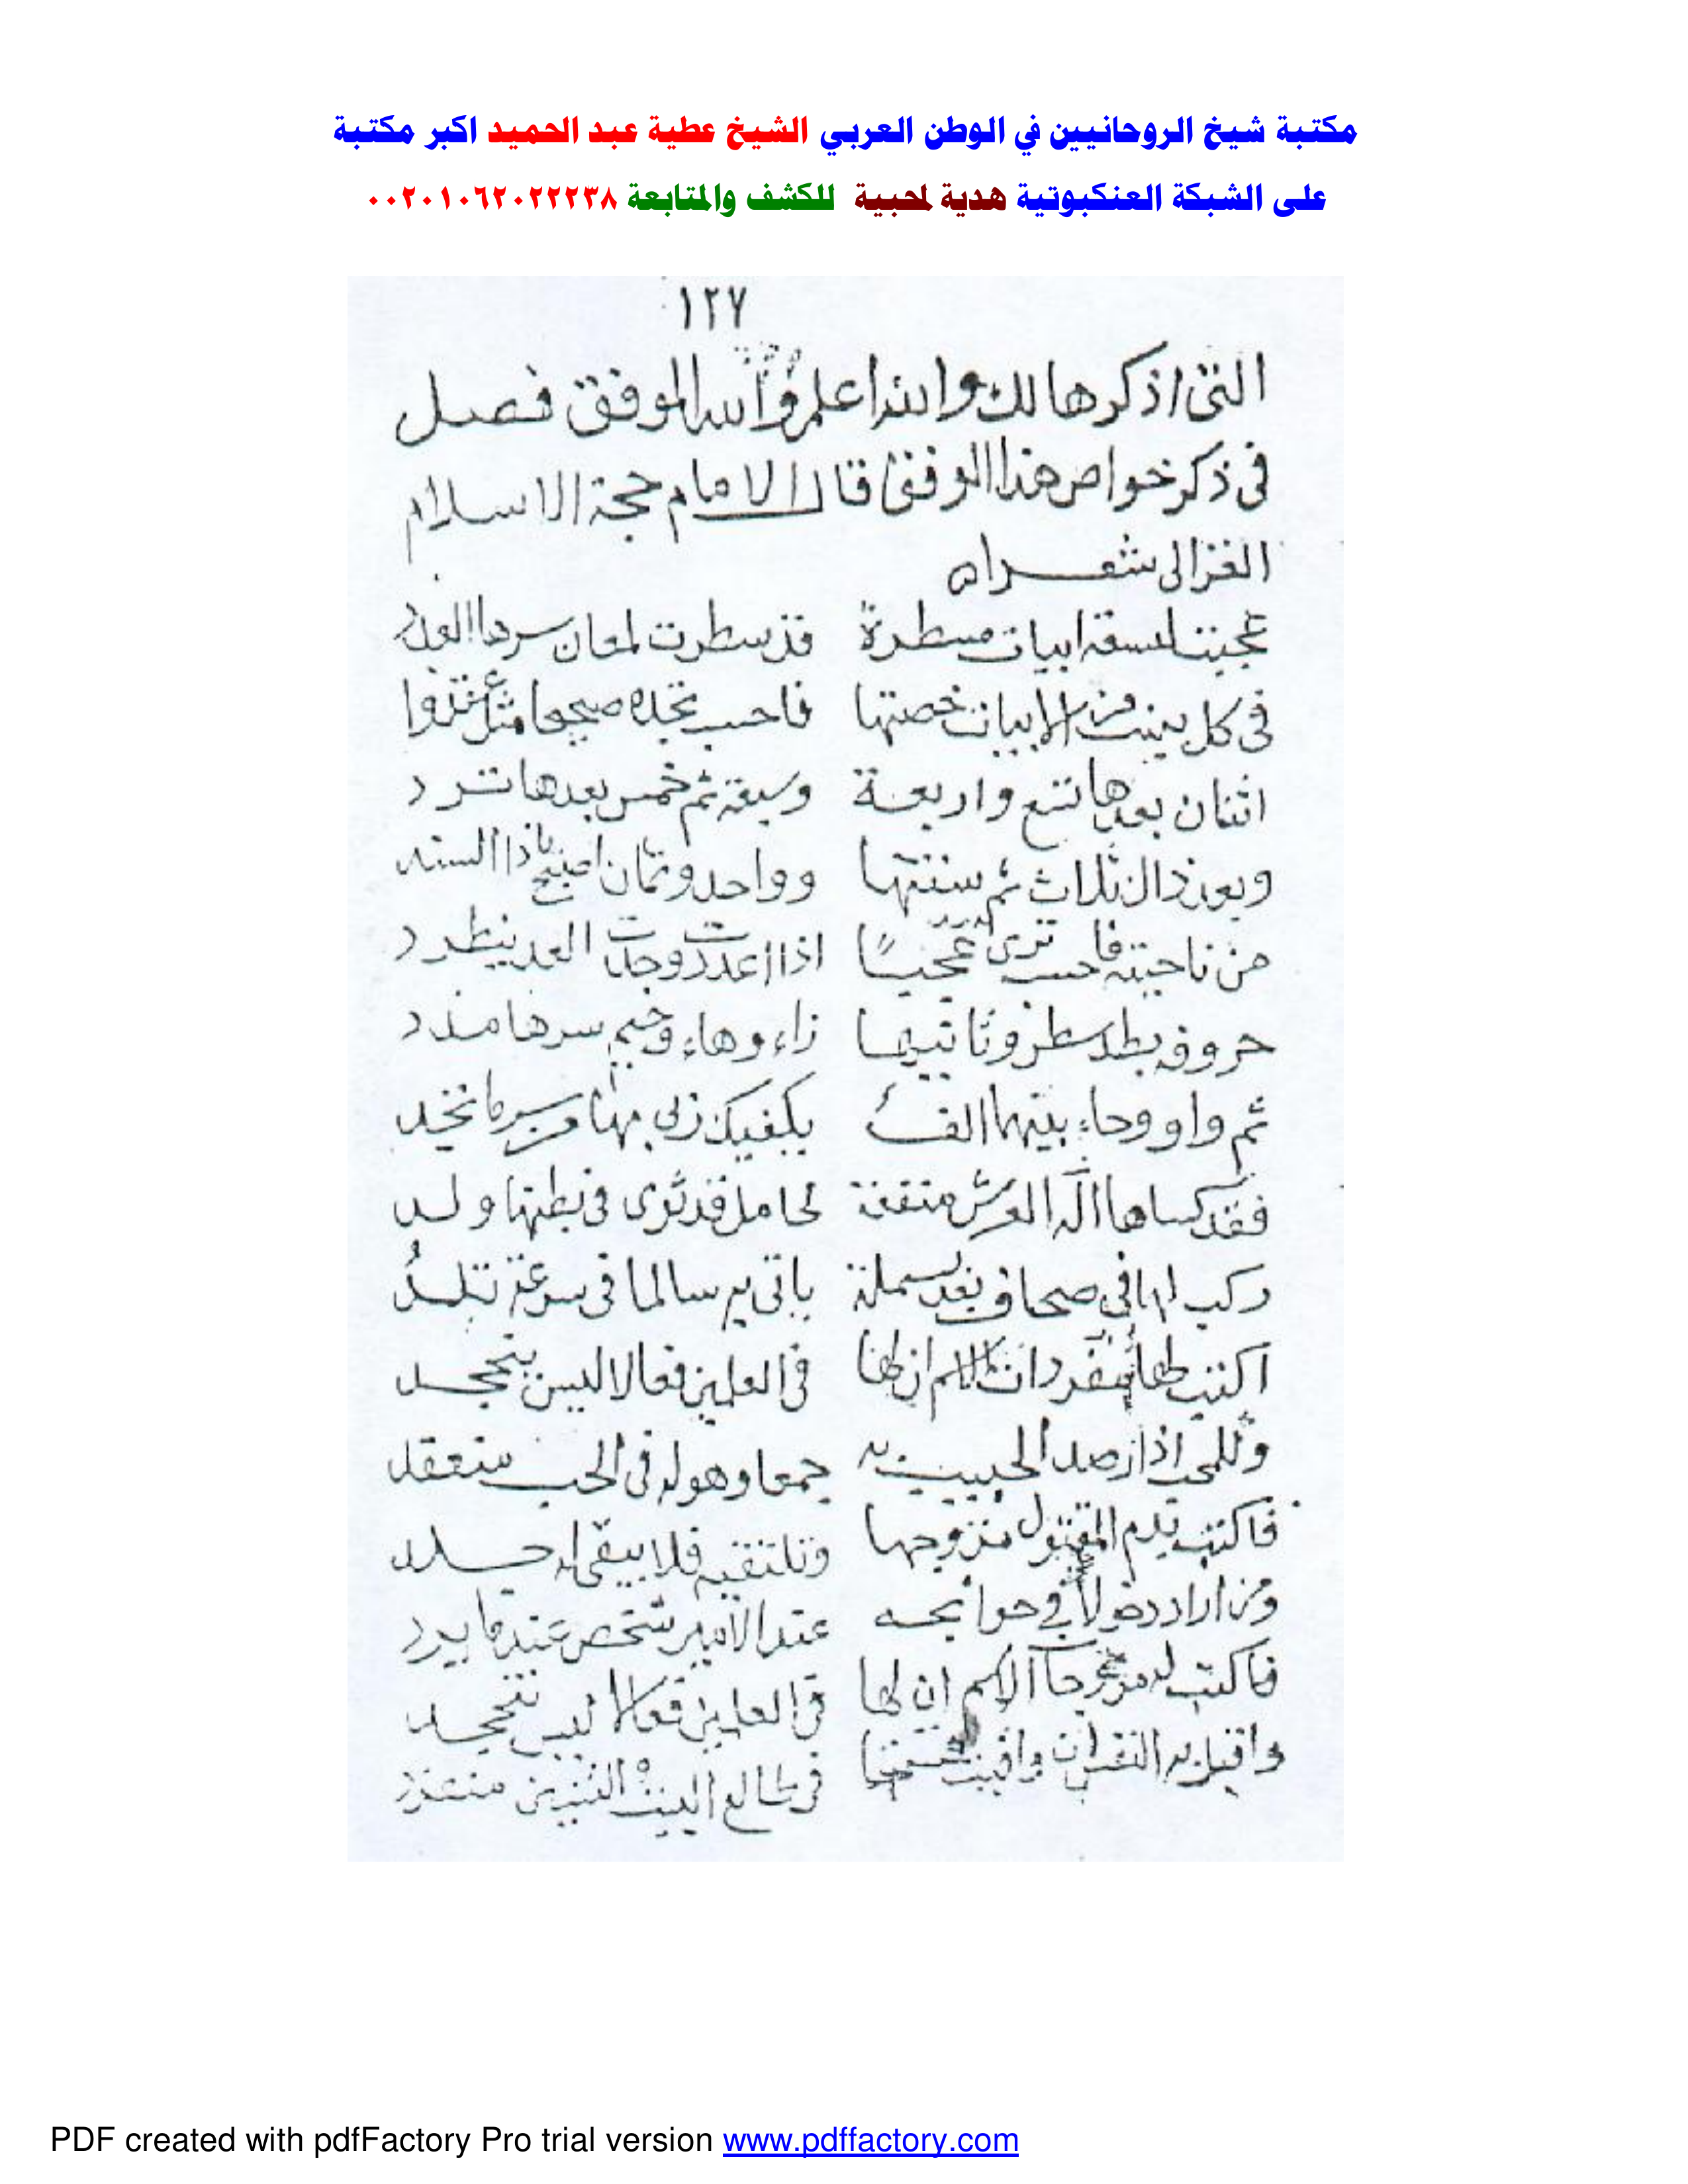 مكتبة شيخ الروحانيين في الوطن العربي الشيخ عطية عبد الحميد اكبر مكتبة
على الشبكة العنكبوتية هدية لمحبية للكشف والمتابعة ٠٠٢٠١٠٦٢٠٢٢٢٣٨
١٢٧
التى اذكرها لك والله اعلم والله الموفق فصل
فى ذكر خواص هذا الوفق قال الامام حجة الاسلام
الغزالى شعرا
عجبت لستة ابيات مسطرة قد سطرت لمعان سرها العدد
فى كل بيت من الابيات خصتها فاحسب تجده صحيحا مثل
اثنان بعدها تسع واربعة وسبعة ثم خمس بعدها ترد
وبعد ذاك ثلاث ثم ستتها وواحد وثمان يا ذا السند
من ناحيته فاحسب ترى عجبا اذا عددت وجدت العد يطرد
حروف بطد سطر وثانيها زاء وهاء وجيم سرها مدد
ثم واو وحاء بينهما الف يكفيك ربى بها من سر ما تجد
فقد كساها اله العرش منفعة لحامل قد ثوى فى بطنها ولد
ركب لها فى صحاف بعد بسملة ياتى به سالما فى سرعة تلد
اكتب لها مفردات الاسم ان لها فى العالمين فعالا ليس ينجحد
وللمحب اذا صد الحبيب به جمعا وهو له فى الحب منعقد
فاكتب بدم المقتول مزوجها وتلتقيه فلا يبقى له جلد
ومن اراد دخولا فى حوائجه عند الامير شخص عندما يرد
فاكتب له مزوجا الاسم ان لها فى العالمين فعالا ليس تنجحد
فى طالع البيت
PDF created with pdfFactory Pro trial version www.pdffactory.com